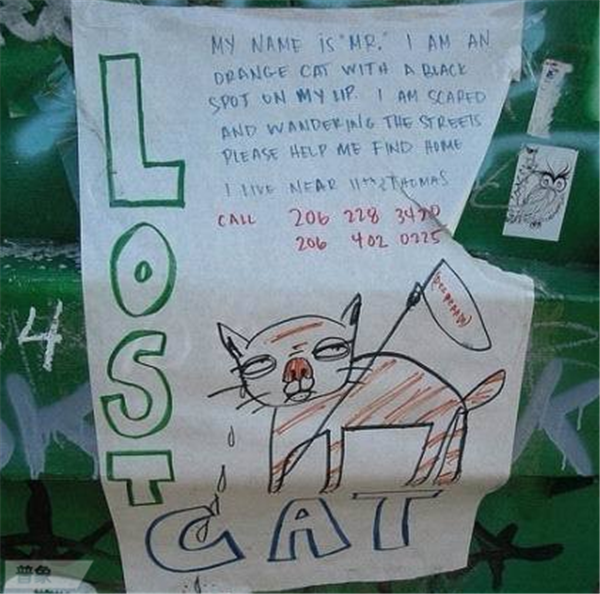 LOST
MY NAME IS "MR." I AM AN
ORANGE CAT WITH A BLACK
SPOT ON MY LIP. I AM SCARED
AND WANDERING THE STREETS
PLEASE HELP ME FIND HOME
I LIVE NEAR 11TH & THOMAS
CALL 206 228 3470
206 402 0225
CAT
4
普象